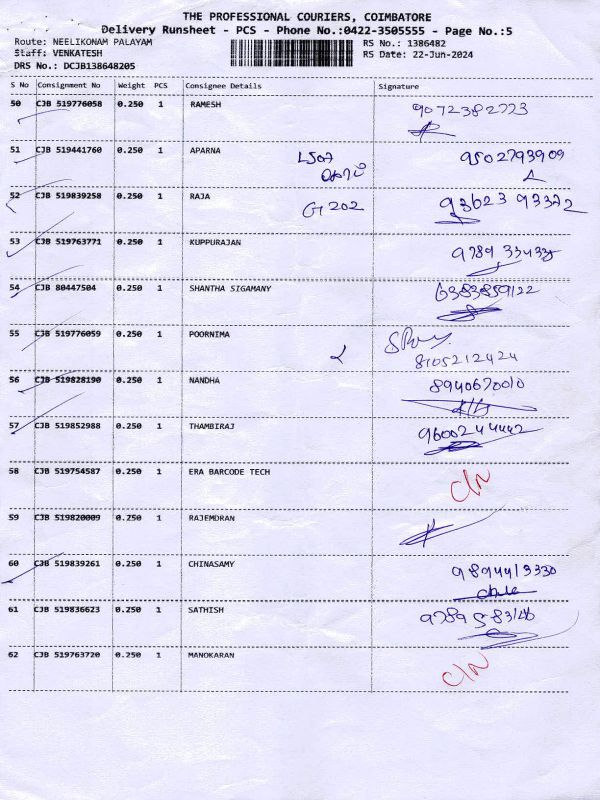 THE PROFESSIONAL COURIERS, COIMBATORE
Delivery Runsheet - PCS - Phone No.:0422-3505555 - Page No.:5
Route: NEELIKONAM PALAYAM
RS No.: 1386482
Staff: VENKATESH
RS Date: 22-Jun-2024
DRS No.: DCJB138648205
S No Consignment No Weight PCS Consignee Details Signature
50 CJB 519776058 0.250 1 RAMESH 9072382773
51 CJB 519441760 0.250 1 APARNA 9502793909
52 CJB 519839258 0.250 1 RAJA G1 202 93623 93372
53 CJB 519763771 0.250 1 KUPPURAJAN
54 CJB 80447504 0.250 1 SHANTHA SIGAMANY 6383859122
55 CJB 519776059 0.250 1 POORNIMA
8105212424
56 CJB 519828190 0.250 1 NANDHA 8940670010
57 CJB 519852988 0.250 1 THAMBIRAJ 9600244442
58 CJB 519754587 0.250 1 ERA BARCODE TECH C/N
59 CJB 519820009 0.250 1 RAJEMDRAN
60 CJB 519839261 0.250 1 CHINASAMY 9894413330
61 CJB 519836623 0.250 1 SATHISH
62 CJB 519763720 0.250 1 MANOKARAN C/N